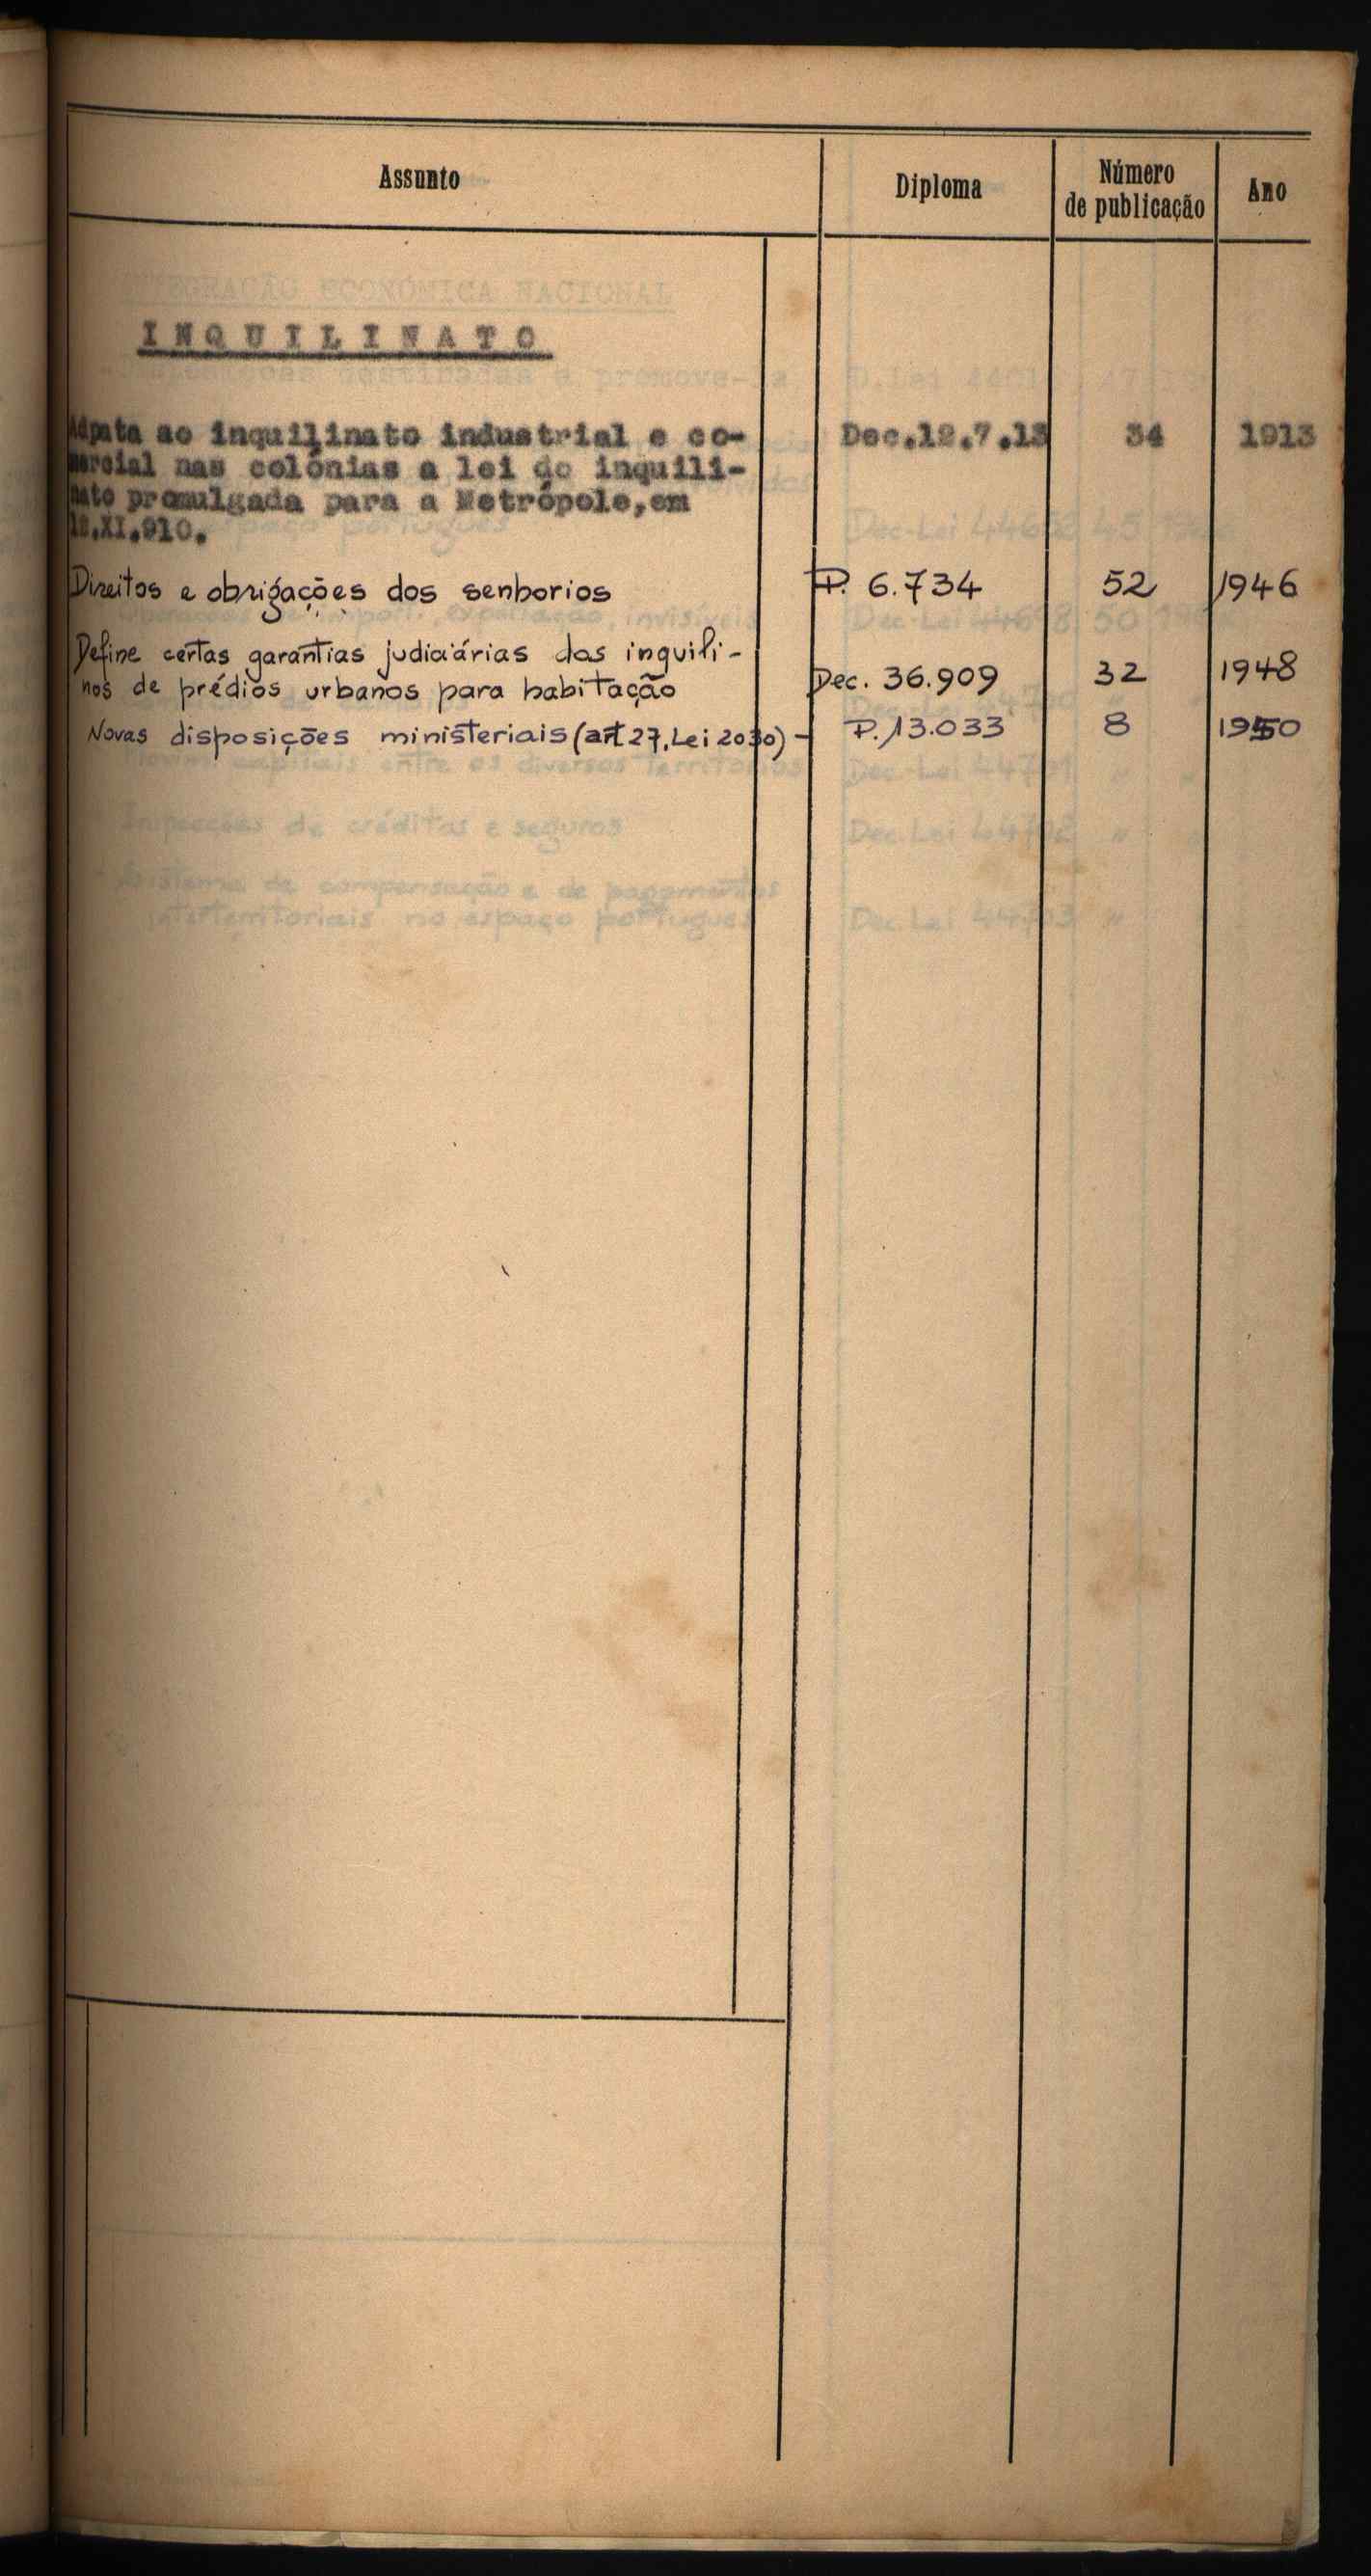 Assunto Diploma Número de publicação Ano
INQUILINATO
Adpata ao inquilinato industrial e co- Dec.12.7.13 34 1913
mercial nas colónias a lei do inquili-
nato promulgada para a Metrópole,em
12.XI.910.
Direitos e obrigações dos senhorios P. 6.734 52 1946
Define certas garantias judiciárias dos inquili-
nos de prédios urbanos para habitação Dec. 36.909 32 1948
Novas disposições ministeriais (art 27, Lei 2030) - P. 13.033 8 1950